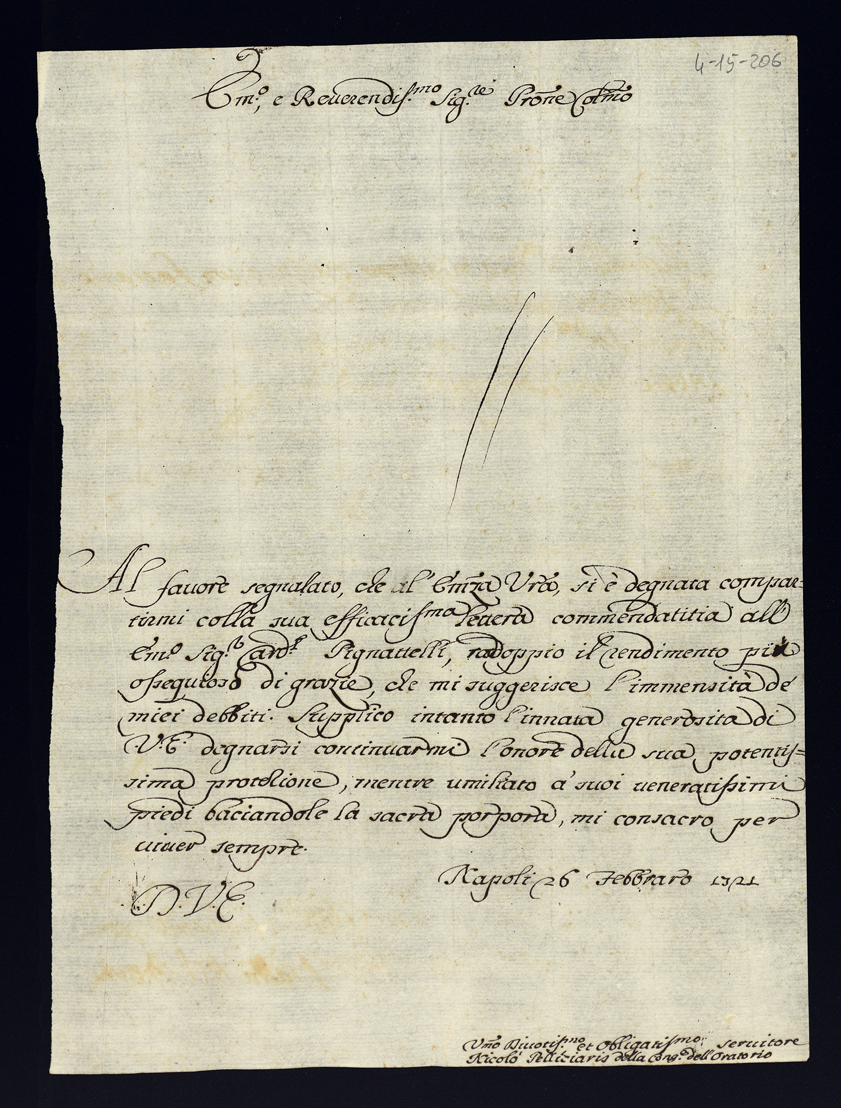 4-15-206
Em.º, e Reuerendis.mo Sig.re Prone Colmo
Al fauore segnalato, che al' Emza Vrã, si è degnata compar=
tirmi colla sua efficacis.ma lettera commendatitia all'
Em.º Sig.r Card.l Pignattelli, radoppio il rendimento più
ossequioso di grazie, che mi suggerisce l'immensità de'
miei debbiti. Supplico intanto l'innata generosità di
V.E. degnarsi continuarmi l'onore della sua potentis=
sima protezione, mentre umiliato a' suoi ueneratissimi
piedi baciandole la sacra porpora, mi consacro per
uiuer sempre.
Napoli 26 Febbraro 1721
D.V.E.
Vmo Diuotis.mo et Obligatis.mo seruitore
Nicolò Pelliziaris della Cong.e dell'Oratorio